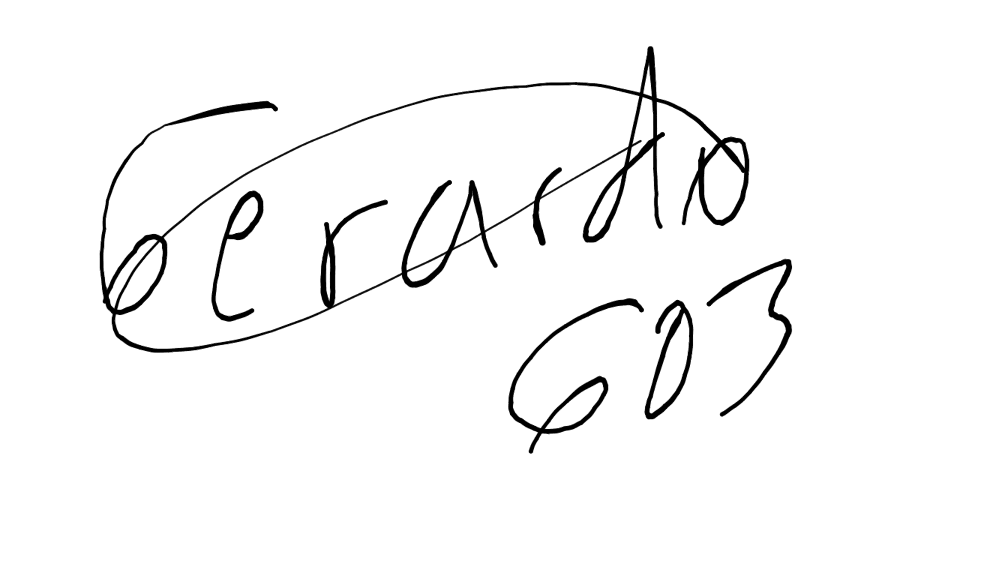 Gerardo
603